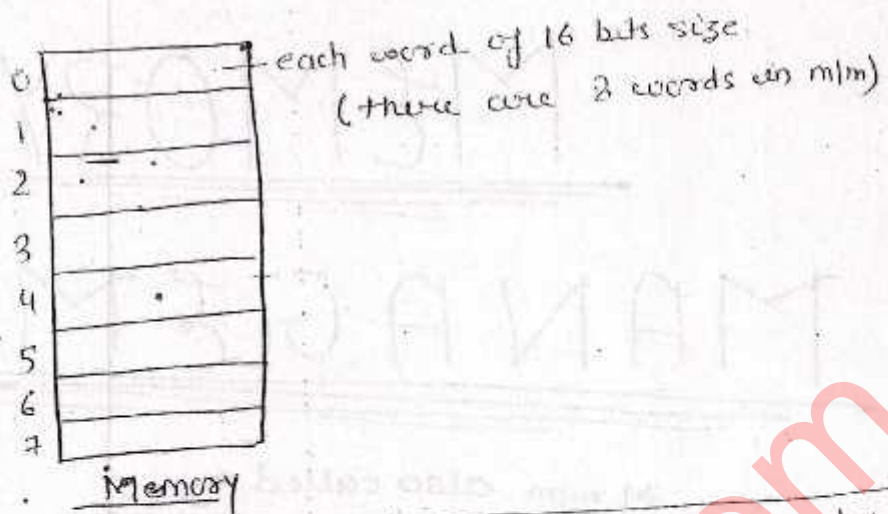 each word of 16 bits size
(there are 8 words in m/m)
0
1
2
3
4
5
6
7
Memory